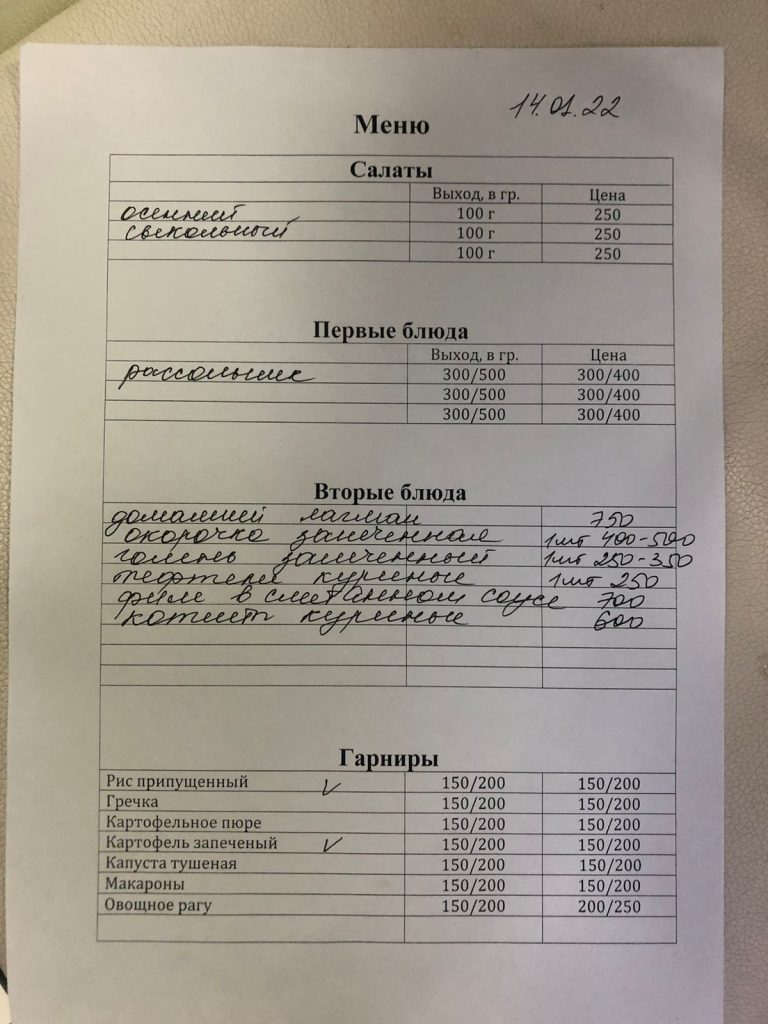 14.01.22
Меню
Салаты
Выход, в гр. Цена
осенний 100 г 250
свекольный 100 г 250
100 г 250
Первые блюда
Выход, в гр. Цена
рассольник 300/500 300/400
300/500 300/400
300/500 300/400
Вторые блюда
домашний лагман 750
окорочка запеченная 1шт 400-500
голень запеченный 1шт 250-350
тефтели куриные 1шт 250
филе в сметанном соусе 700
котлет куриные 600
Гарниры
Рис припущенный V 150/200 150/200
Гречка 150/200 150/200
Картофельное пюре 150/200 150/200
Картофель запеченый V 150/200 150/200
Капуста тушеная 150/200 150/200
Макароны 150/200 150/200
Овощное рагу 150/200 200/250